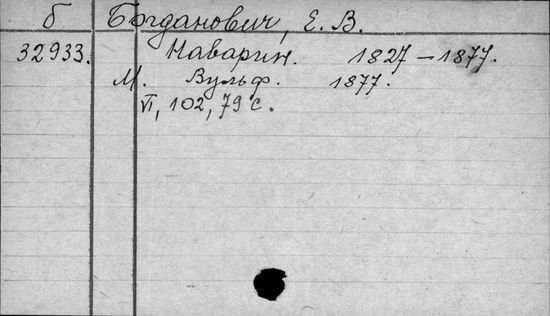 б Богданович, Е. В.
32933. Наварин. 1827 – 1877.
М. Вульф. 1877.
VI, 102, 79 с.